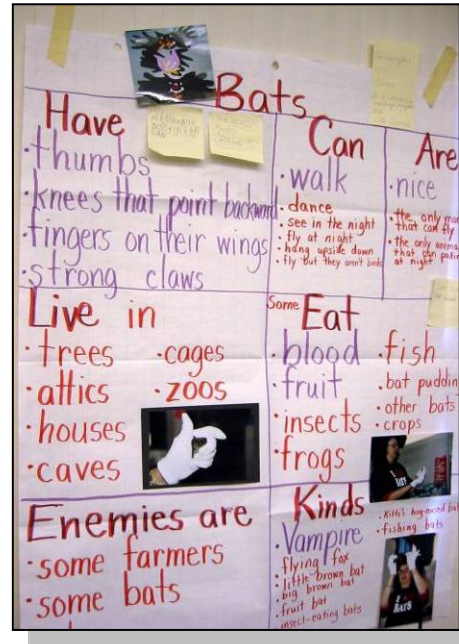 Bats
Have
·thumbs
·knees that point backward
·fingers on their wings
·strong claws
Can
·walk
·dance
·see in the night
·fly at night
·hang upside down
·fly but they aren't birds
Are
·nice
·the only
that can fly
·the only
that can
at night
Live in
·trees
·attics
·houses
·caves
·cages
·zoos
Some Eat
·blood
·fruit
·insects
·frogs
·fish
·bat
·other bats
·crops
Enemies are
·some farmers
·some bats
Kinds
·Vampire
flying fox
·little brown bat
big brown bat
·fruit bat
·insect-eating bats
·Kitti's hog-nosed bat
·fishing bats
I
BATS